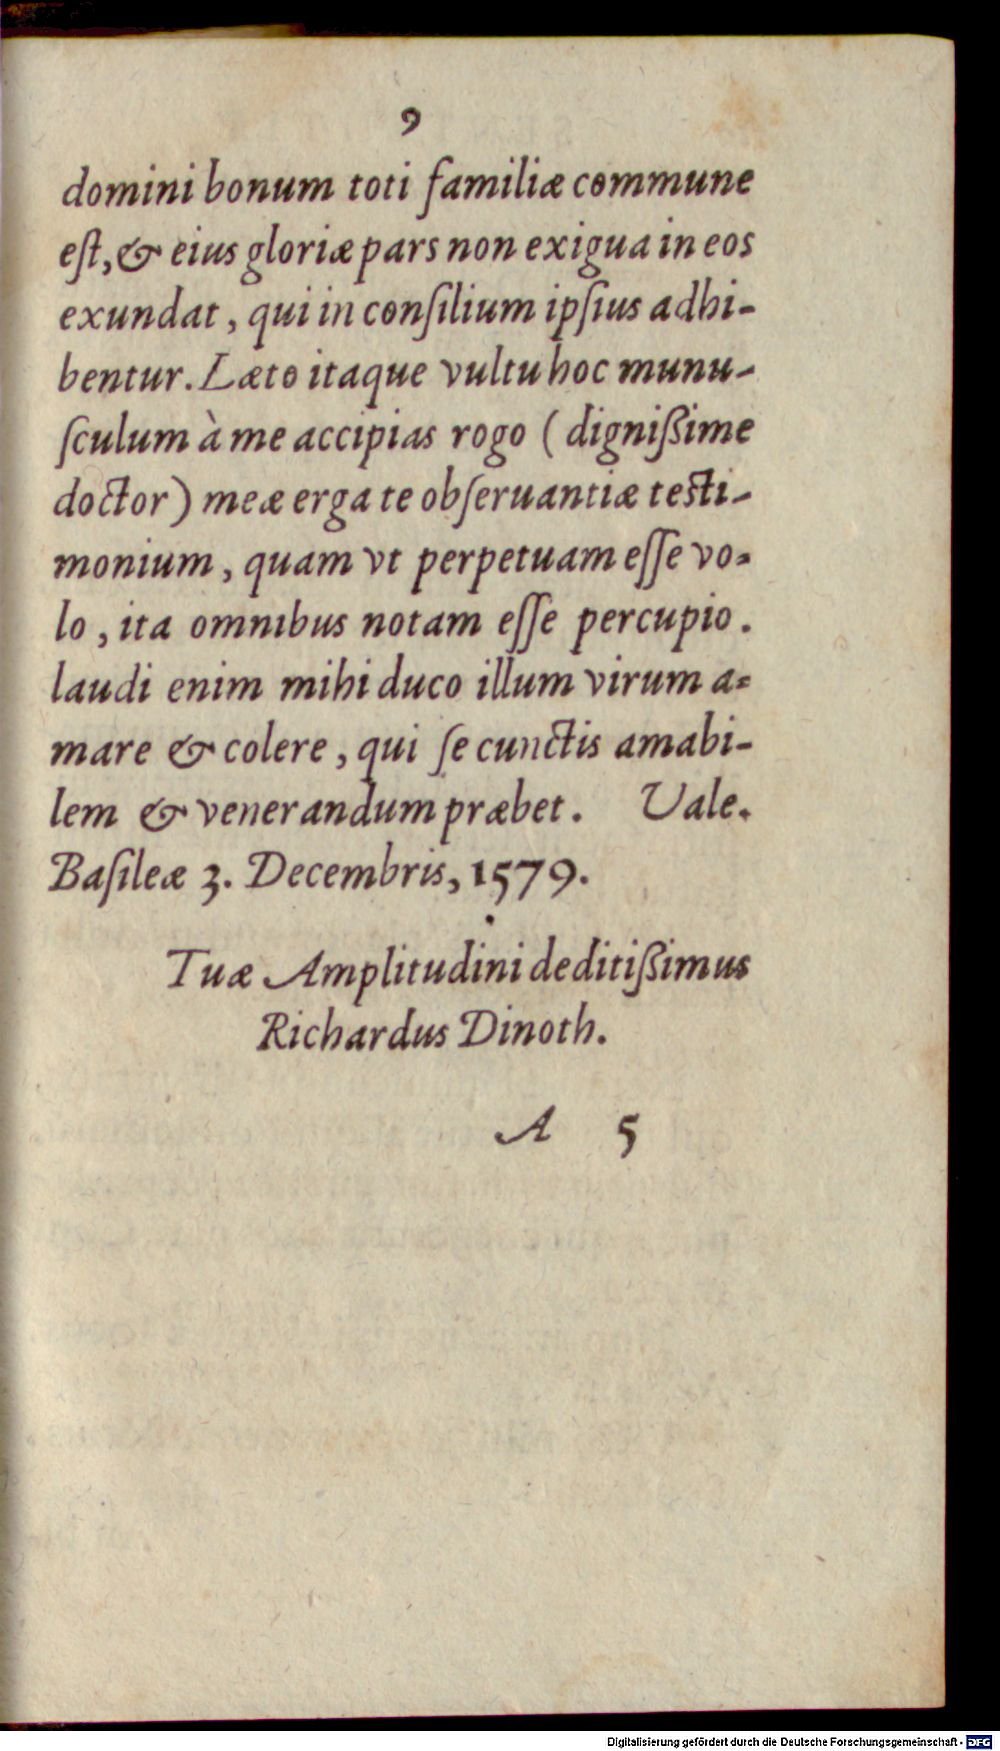 9
domini bonum toti familiæ commune
eſt, & eius gloriæ pars non exigua in eos
exundat, qui in conſilium ipſius adhi-
bentur. Læto itaque vultu hoc munu-
ſculum à me accipias rogo (digniſſime
doctor) meæ erga te obſeruantiæ testi-
monium, quam vt perpetuam eſſe vo-
lo, ita omnibus notam eſſe percupio.
laudi enim mihi duco illum virum a-
mare & colere, qui ſe cunctis amabi-
lem & venerandum præbet. Vale.
Baſileæ 3. Decembris, 1579.
Tuæ Amplitudini deditiſſimus
Richardus Dinoth.
A 5
Digitalisierung gefördert durch die Deutsche Forschungsgemeinschaft - DFG